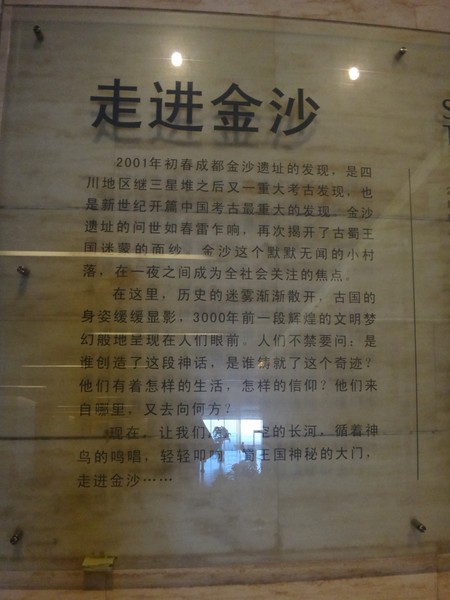 走进金沙
2001年初春成都金沙遗址的发现，是四
川地区继三星堆之后又一重大考古发现，也
是新世纪开篇中国考古最重大的发现。金沙
遗址的问世如春雷乍响，再次揭开了古蜀王
国迷蒙的面纱。金沙这个默默无闻的小村
落，在一夜之间成为全社会关注的焦点。
在这里，历史的迷雾渐渐散开，古国的
身姿缓缓显影，3000年前一段辉煌的文明梦
幻般地呈现在人们眼前。人们不禁要问：是
谁创造了这段神话，是谁铸就了这个奇迹？
他们有着怎样的生活，怎样的信仰？他们来
自哪里，又去向何方？
现在，让我们 空的长河，循着神
鸟的鸣唱，轻轻叩 蜀王国神秘的大门，
走进金沙……